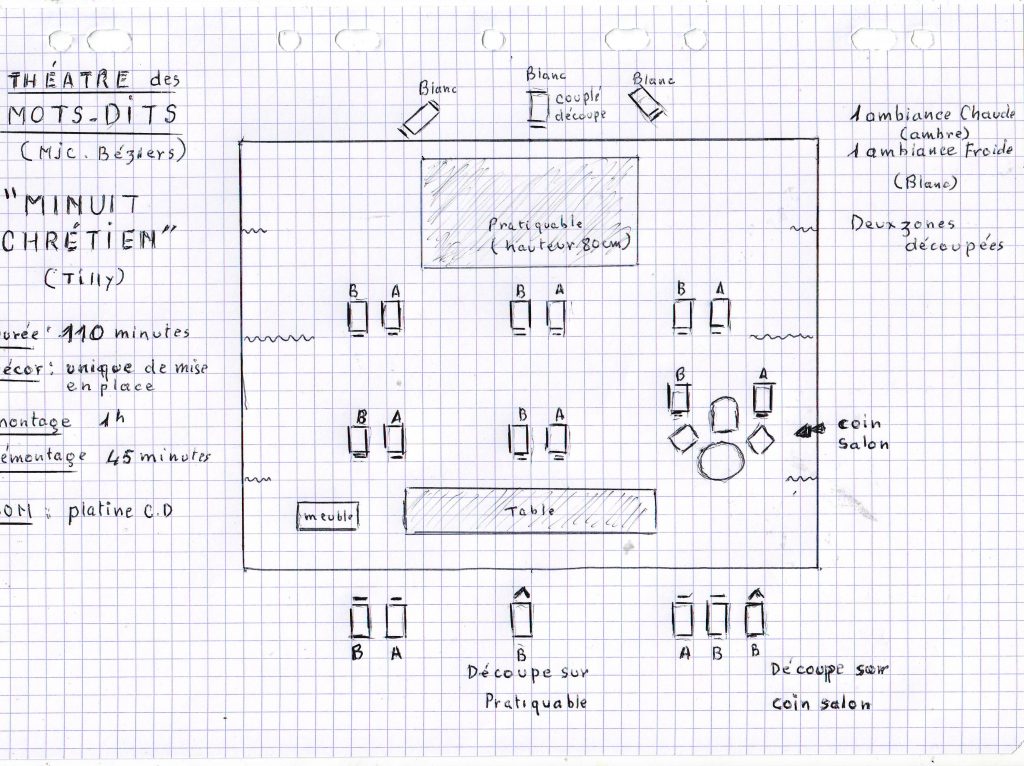 THÉATRE des
MOTS-DiTS
(Mjc. Béziers)
"MINUIT
CHRÉTIEN"
(Tilly)
urée : 110 minutes
écor : unique de mise
en place
montage 1h
émontage 45 minutes
SON : platine C.D
Blanc
Blanc
couplé
découpe
Blanc
Pratiquable
(hauteur 80cm)
B A
B A
B A
B A
B A
B A
coin
salon
meuble
Table
B A
B
Découpe sur
Pratiquable
A B B
Découpe sur
coin salon
1 ambiance Chaude
(ambre)
1 ambiance Froide
(Blanc)
Deux zones
découpées